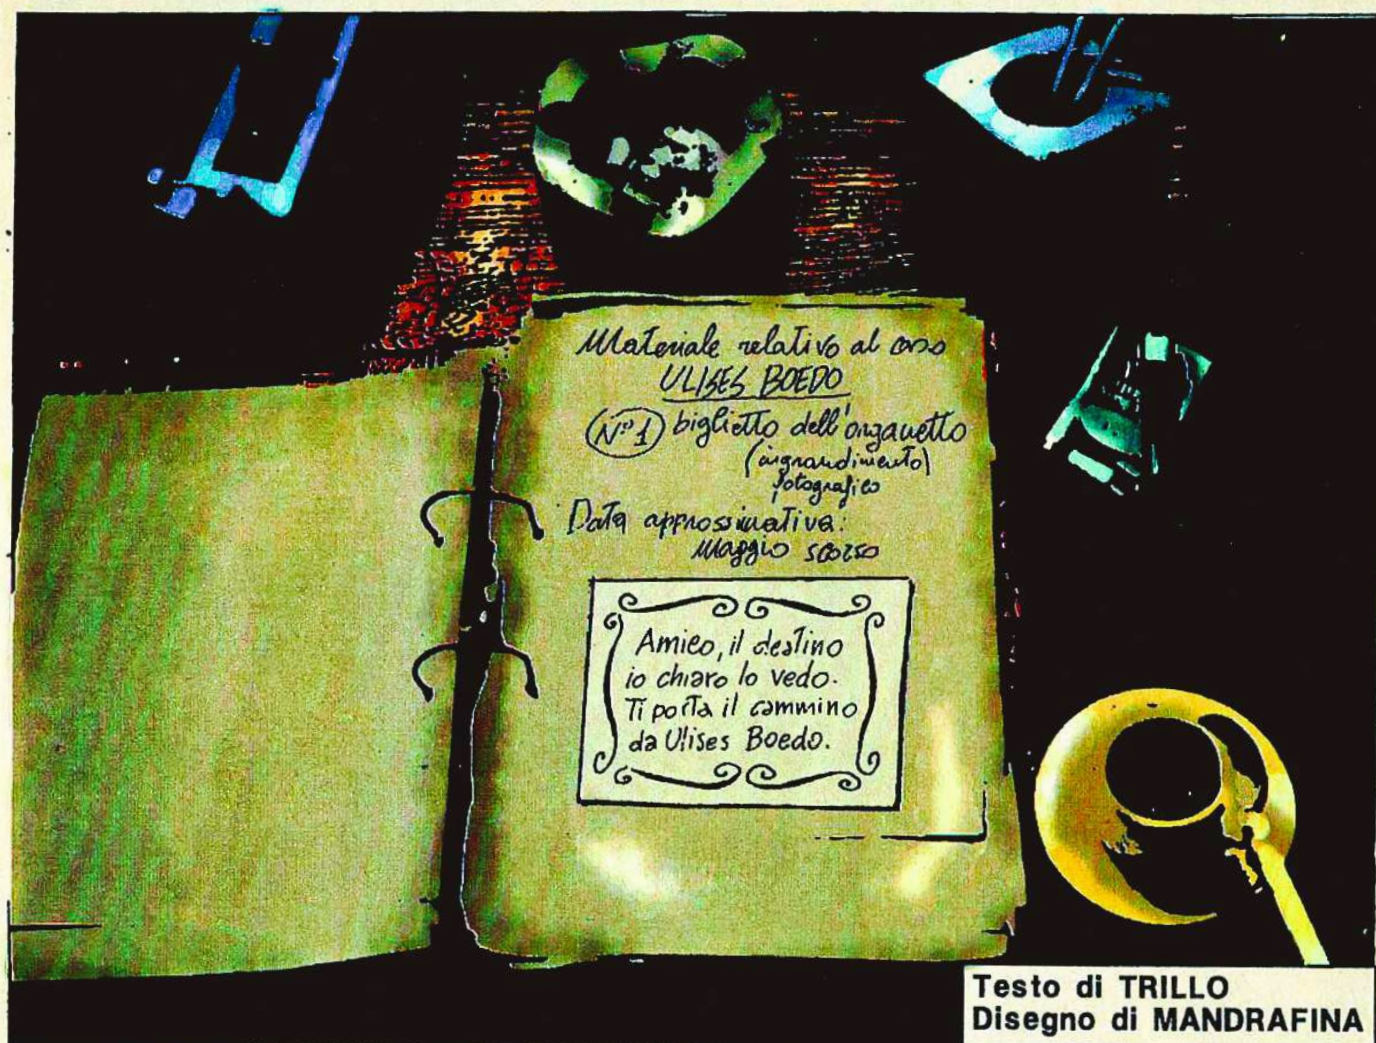 Materiale relativo al caso
ULISES BOEDO
N°1 biglietto dell'organetto
(ingrandimento)
fotografico
Data approssimativa:
Maggio scorso
Amico, il destino
io chiaro lo vedo.
Ti porta il cammino
da Ulises Boedo.
Testo di TRILLO
Disegno di MANDRAFINA